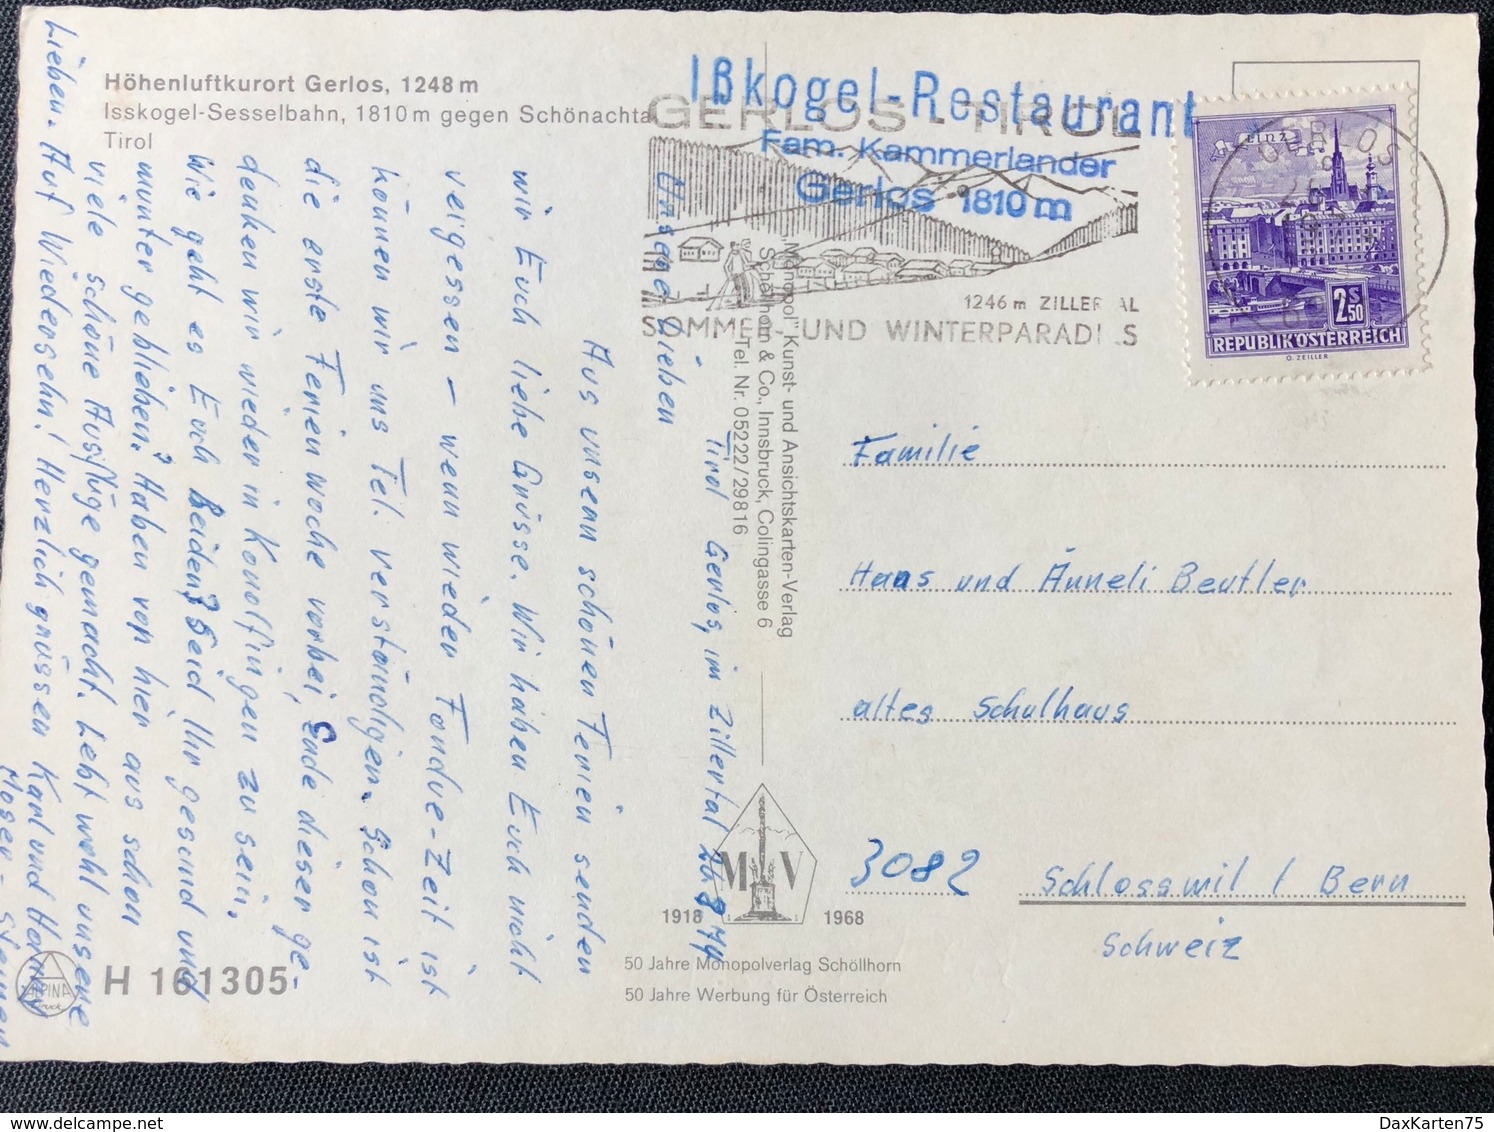 Höhenluftkurort Gerlos, 1248 m
Isskogel-Sesselbahn, 1810 m gegen Schönachtal
Tirol
Ißkogel-Restaurant
Fam. Kammerlander
Gerlos 1810 m
GERLOS - TIROL
1246 m ZILLERTAL
SOMMER- UND WINTERPARADIES
LINZ
GERLOS
2 S 50
REPUBLIK ÖSTERREICH
O. ZEILLER
Tirol Gerlos, im Zillertal 26.8.74
Unsere Lieben
Aus unsean schönen Ferien senden
wir Euch liebe Grüsse. Wir haben Euch nicht
veigessen – wenn wieder Fondue-Zeit ist
können wir uns Tel. verständigen. Schon ist
die erste Ferien woche vorbei, Ende dieser ge-
denken wir wieder in Konolfingen zu sein.
Wie geht es Euch Beiden? Seid Ihr gesund und
munter geblieben? Haben von hier aus schon
viele schöne Ausflüge gemacht. Lebt wohl unsere
Lieben. Auf Wiedersehn! Herzlich grüssen Karl und
Moser-
"Monopol" Kunst- und Ansichtskarten-Verlag
Schöllhorn & Co., Innsbruck, Colingasse 6
Tel. Nr. 05222/29816
Familie
Hans und Änneli Beutler
altes Schulhaus
3082 Schlosswil / Bern
Schweiz
M V
1918 1968
50 Jahre Monopolverlag Schöllhorn
50 Jahre Werbung für Österreich
ALPINA
Druck
H 161305
DaxKarten75